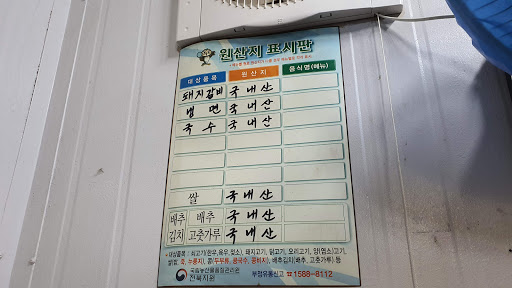 원산지 표시판
대상품목 원산지 음식명(메뉴)
돼지갈비 국내산
냉면 국내산
국수 국내산
쌀 국내산
배추김치 배추 국내산
고춧가루 국내산
•대상품목 : 쇠고기(한우,육우,젖소), 돼지고기, 닭고기, 오리고기, 양(염소)고기,
쌀(밥, 죽, 누룽지), 콩(두부류, 콩국수, 콩비지), 배추김치(배추, 고춧가루) 등
국립농산물품질관리원
전북지원
부정유통신고 ☎1588-8112